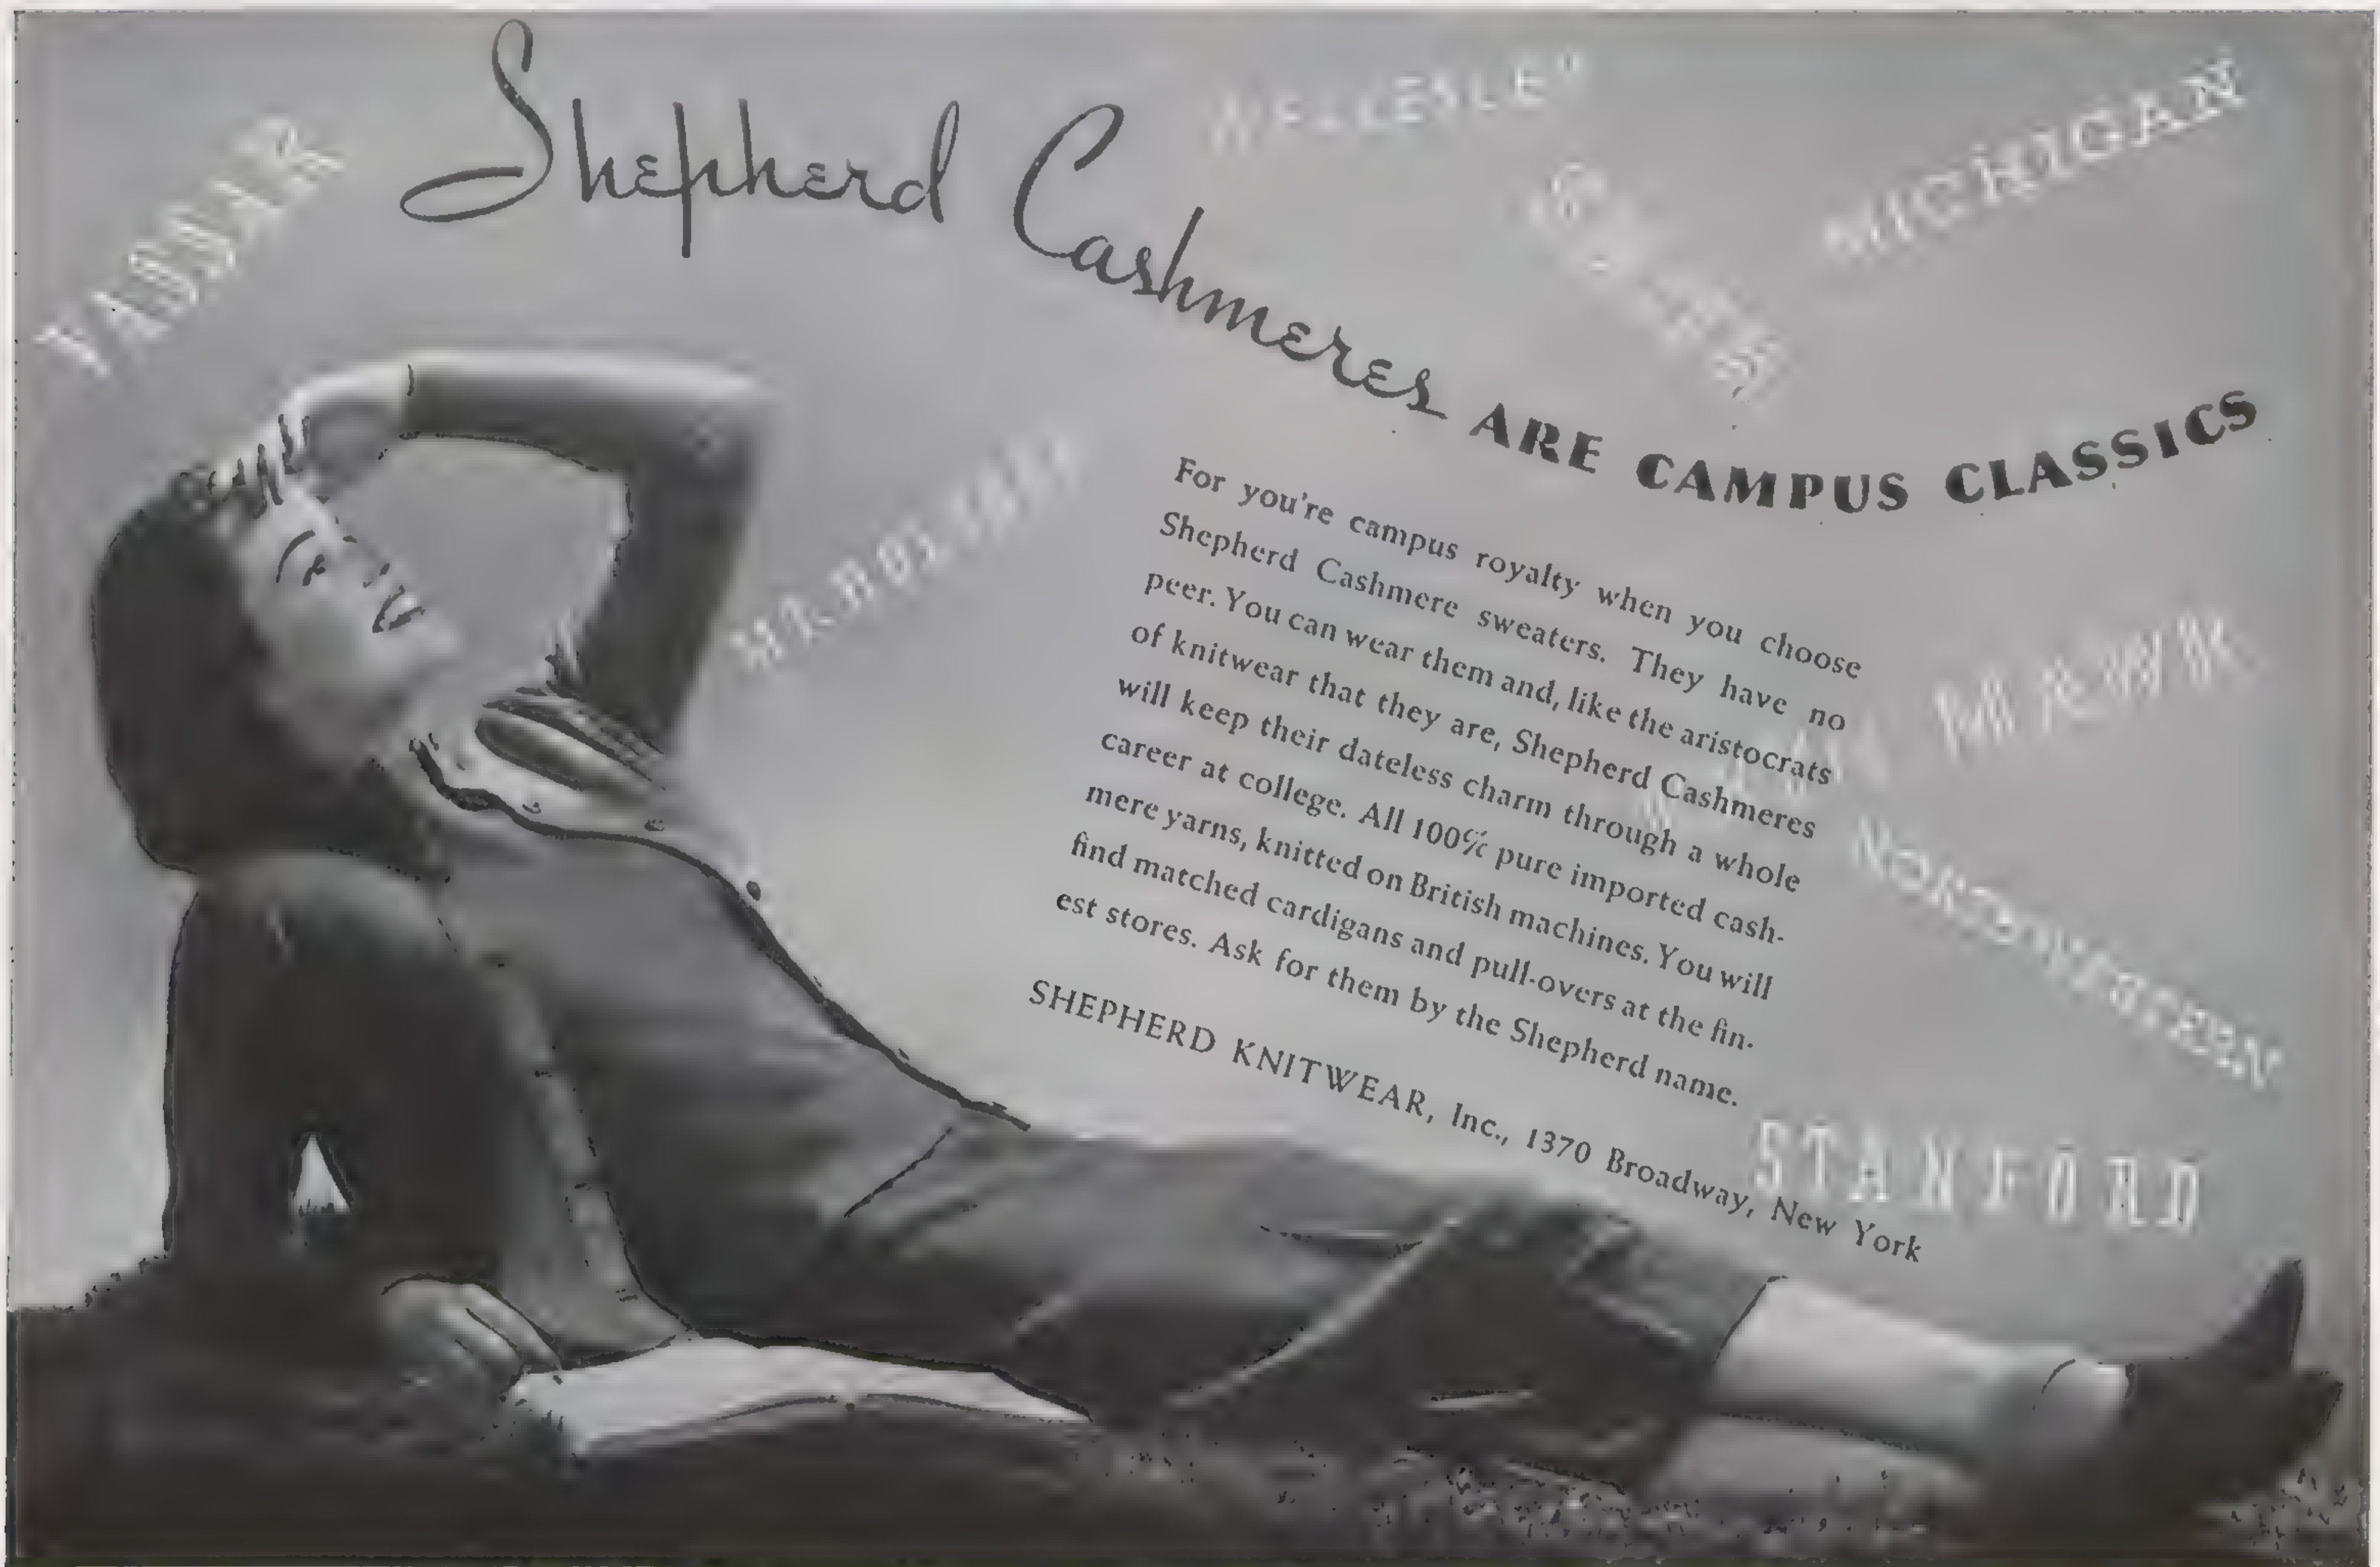 VASSAR
WELLESLEY
MICHIGAN
SMITH
Shepherd Cashmeres ARE CAMPUS CLASSICS
For you're campus royalty when you choose
Shepherd Cashmere sweaters. They have no
peer. You can wear them and, like the aristocrats
of knitwear that they are, Shepherd Cashmeres
will keep their dateless charm through a whole
career at college. All 100% pure imported cash-
mere yarns, knitted on British machines. You will
find matched cardigans and pull-overs at the fin-
est stores. Ask for them by the Shepherd name.
SHEPHERD KNITWEAR, Inc., 1370 Broadway, New York
MAWR
NORTHWESTERN
STANFORD